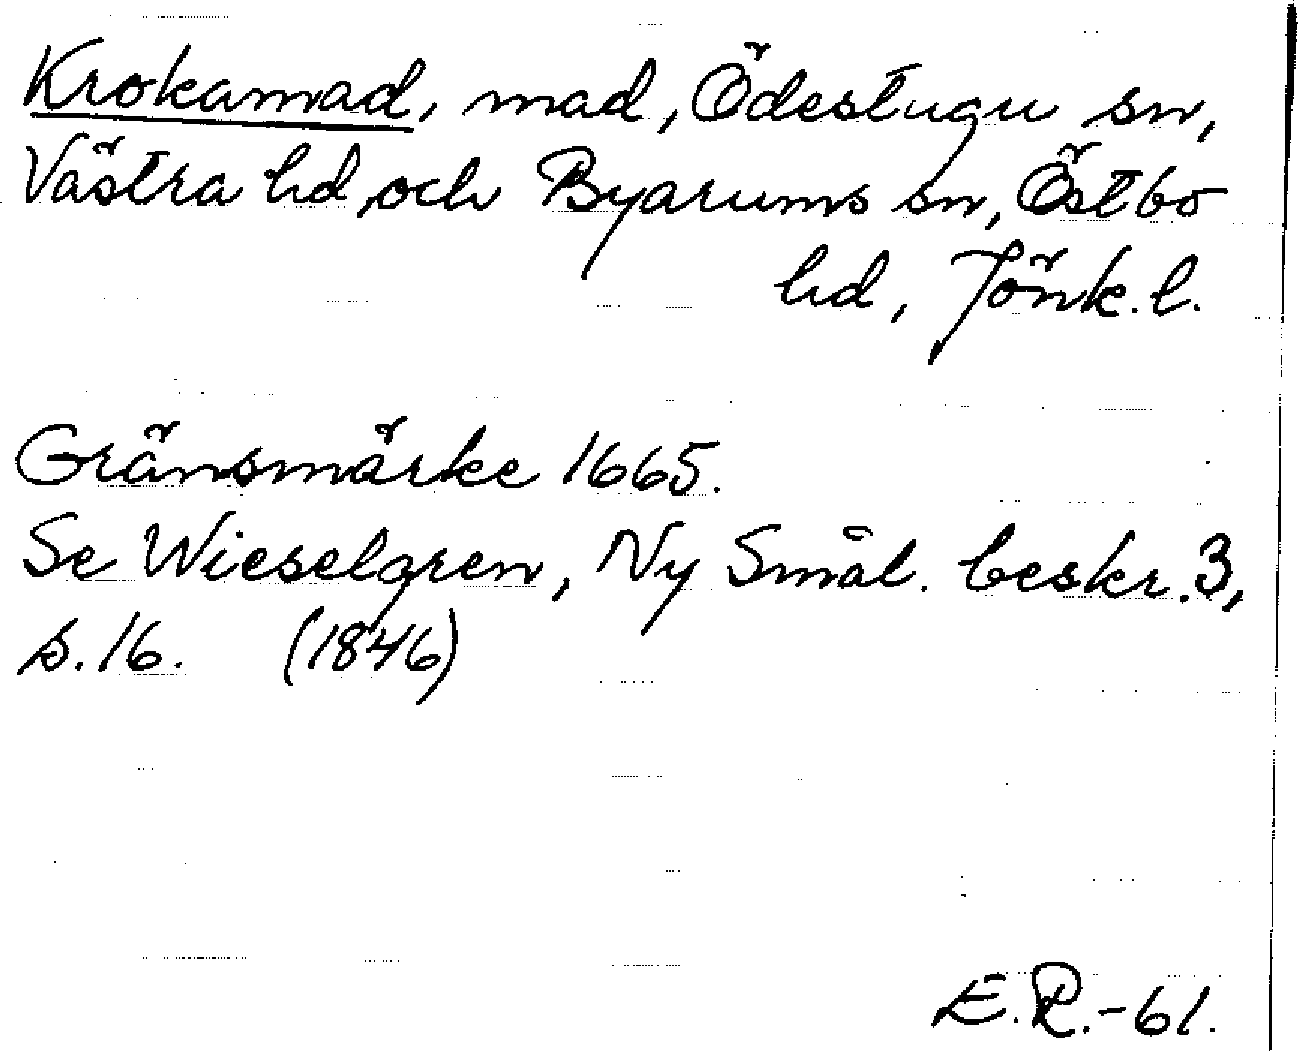 Krokamad, mad, Ödestugu sn,
Västra hd, och Byarums sn, Östbo
hd, Jönk. l.
Gränsmärke 1665.
Se Wieselgren, Ny Smål. beskr. 3,
s. 16. (1846)
E.R.-61.